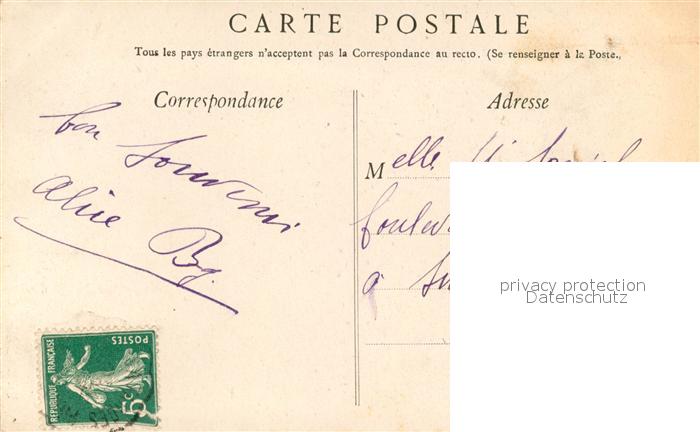 CARTE POSTALE
Tous les pays étrangers n'acceptent pas la Correspondance au recto. (Se renseigner à la Poste.)
Correspondance
Adresse
bon
Souvenir
Alice By.
Melle
à
privacy protection
Datenschutz
RÉPUBLIQUE FRANÇAISE
POSTES
5c